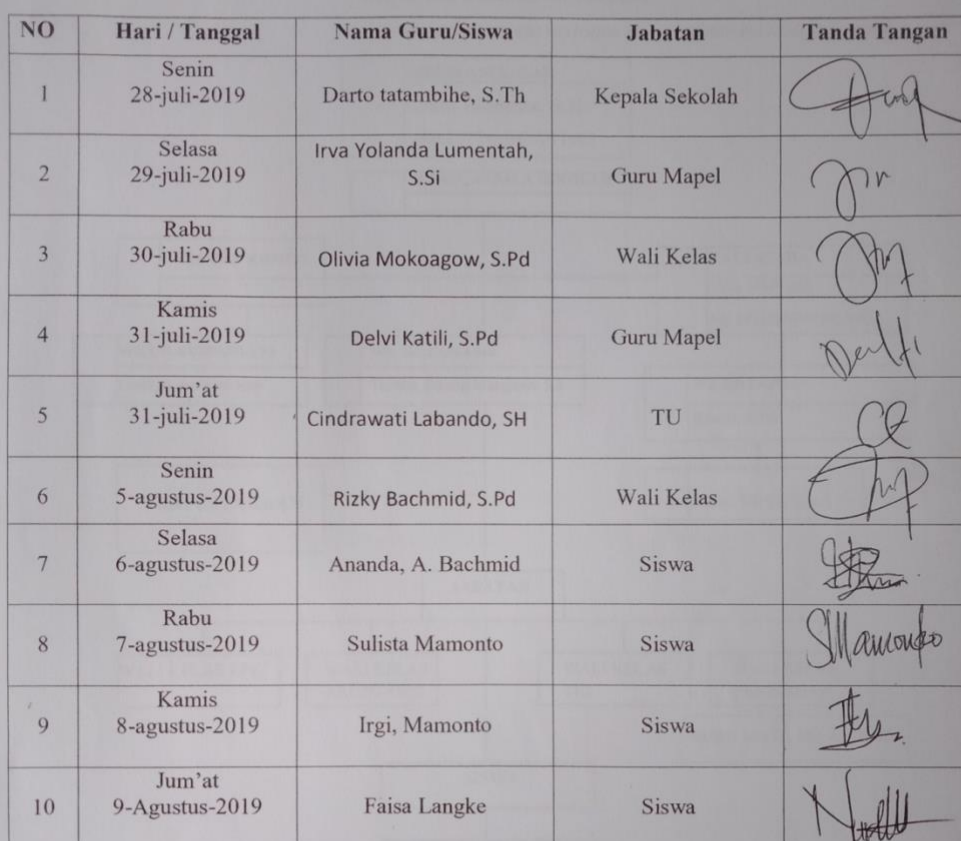 NO Hari / Tanggal Nama Guru/Siswa Jabatan Tanda Tangan
Senin
1 28-juli-2019 Darto tatambihe, S.Th Kepala Sekolah
Selasa Irva Yolanda Lumentah,
2 29-juli-2019 S.Si Guru Mapel
Rabu
3 30-juli-2019 Olivia Mokoagow, S.Pd Wali Kelas
Kamis
4 31-juli-2019 Delvi Katili, S.Pd Guru Mapel
Jum'at
5 31-juli-2019 Cindrawati Labando, SH TU
Senin
6 5-agustus-2019 Rizky Bachmid, S.Pd Wali Kelas
Selasa
7 6-agustus-2019 Ananda, A. Bachmid Siswa
Rabu
8 7-agustus-2019 Sulista Mamonto Siswa SMamonto
Kamis
9 8-agustus-2019 Irgi, Mamonto Siswa
Jum'at
10 9-Agustus-2019 Faisa Langke Siswa